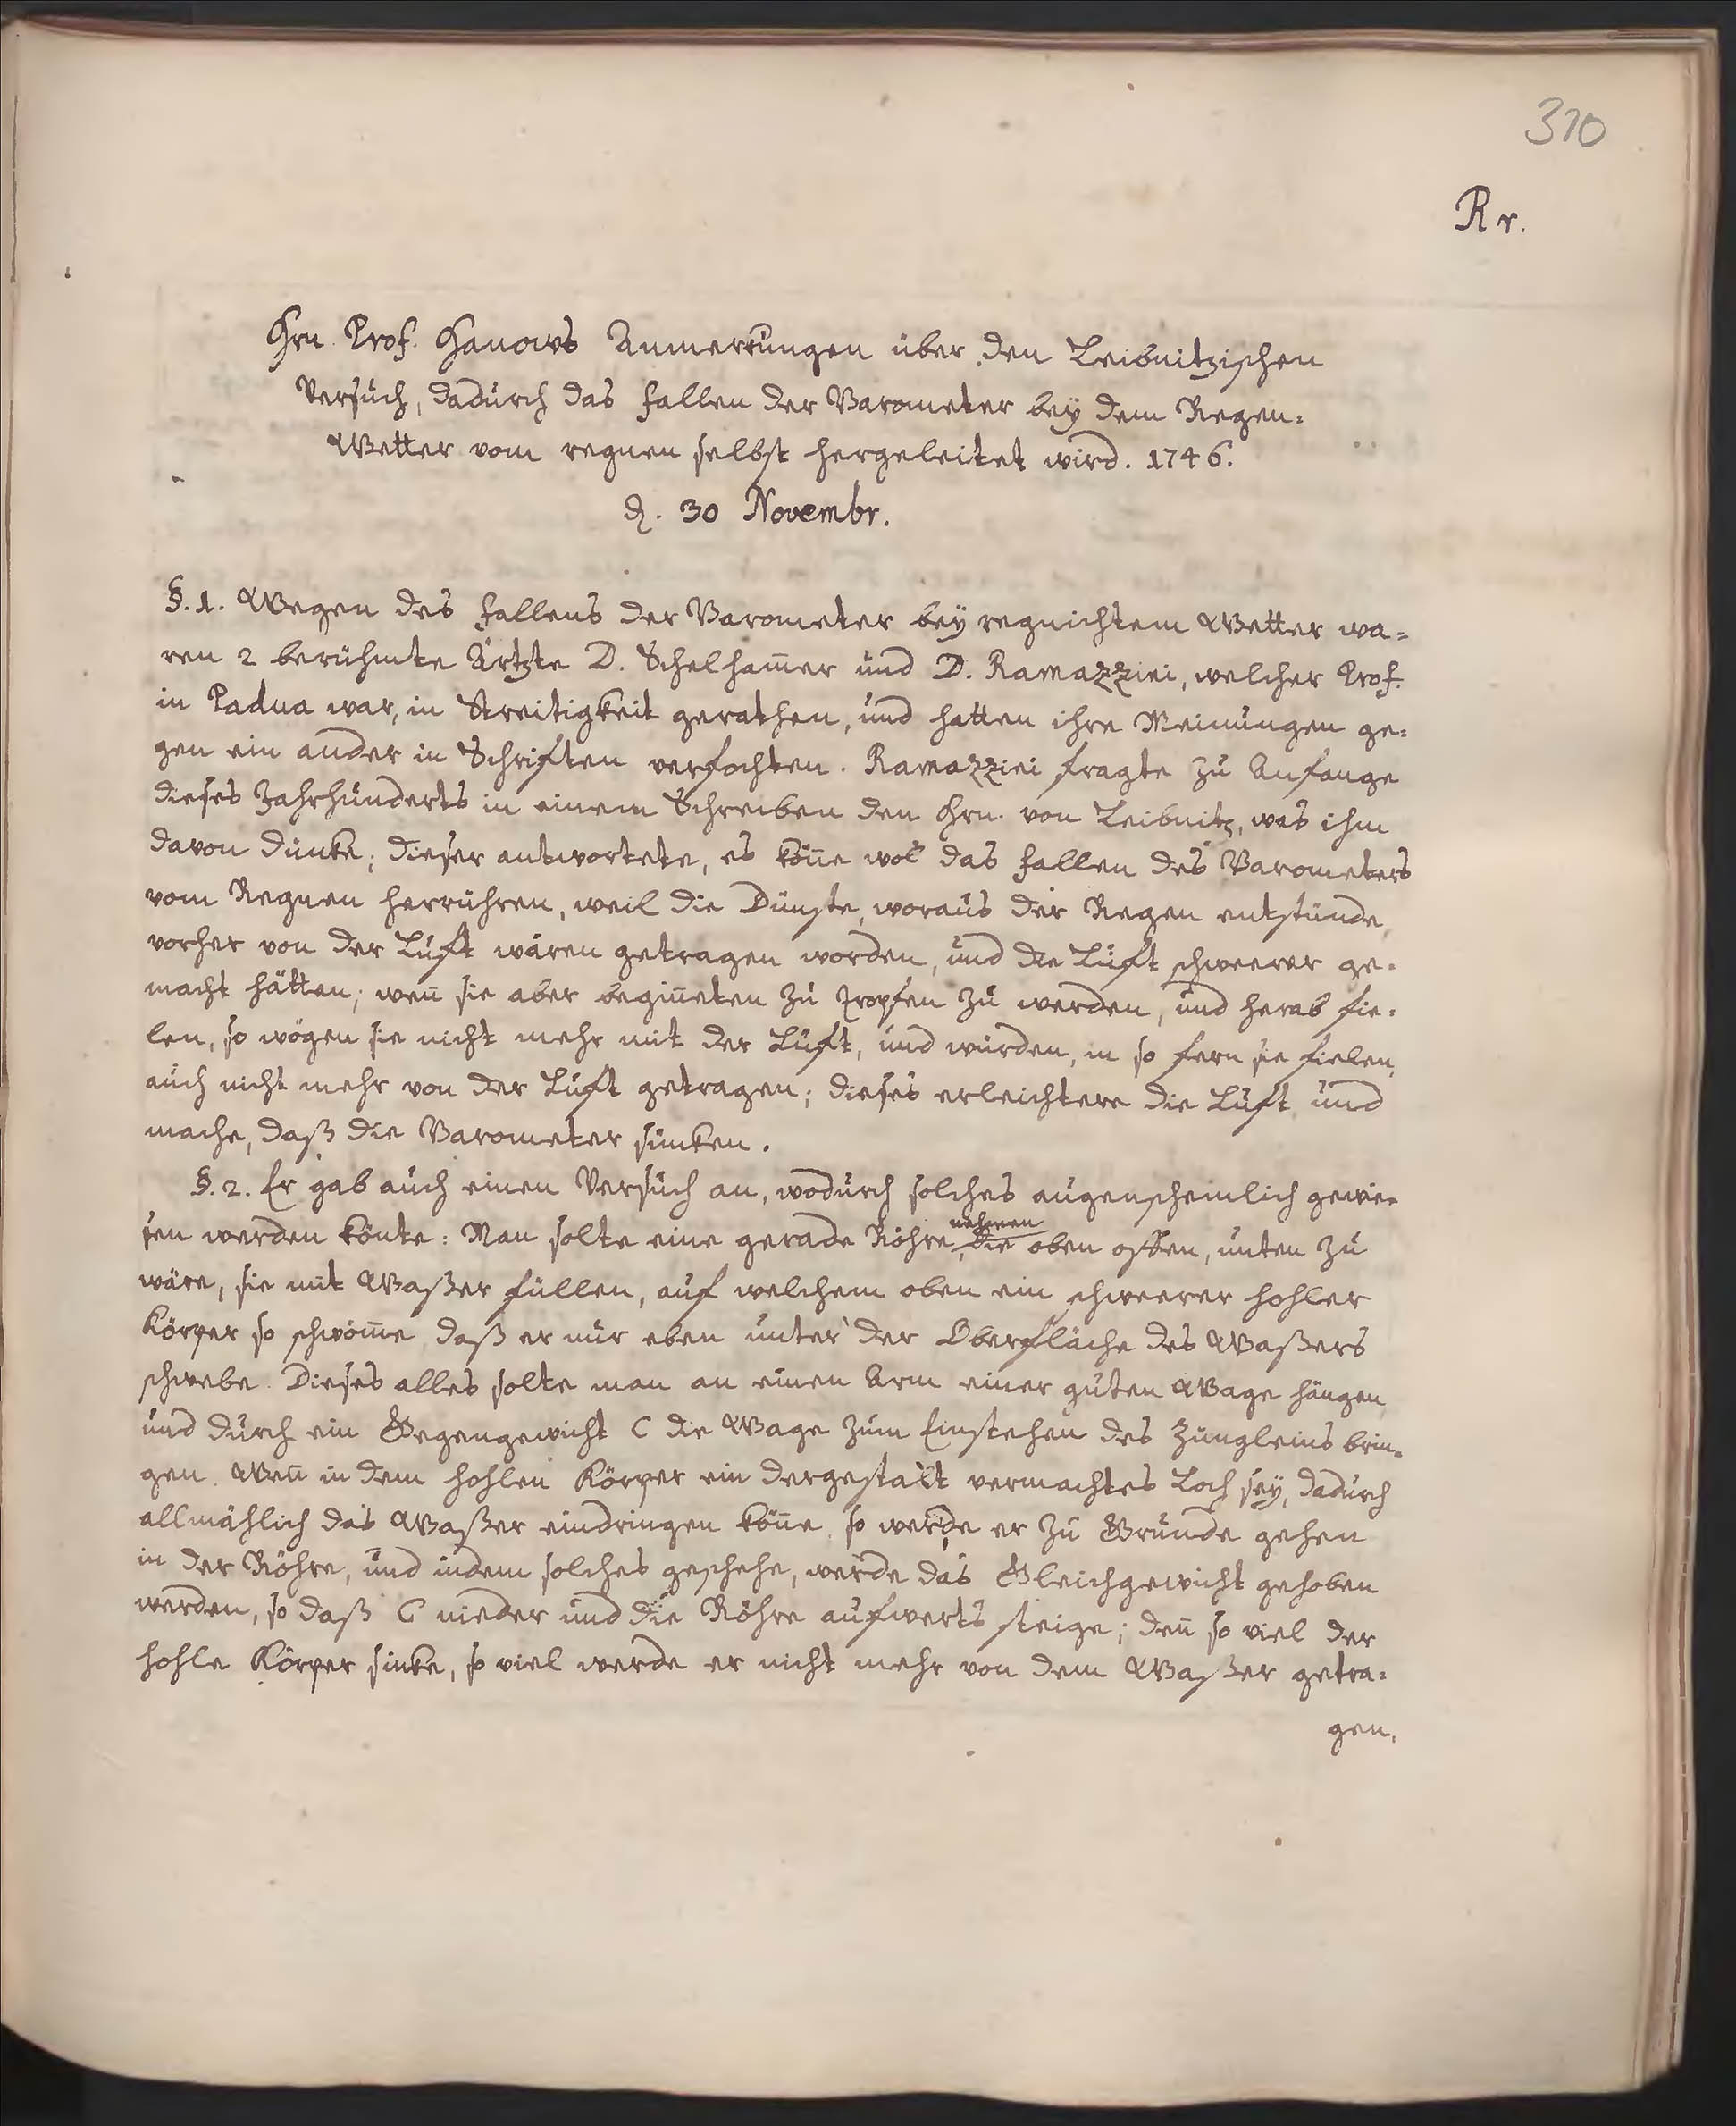 310
Rr.
Hrn. Prof. Hanows Anmerkungen über den Leibnitzischen
Versuch, dadurch das Fallen der Barometer bey dem Regen=
Wetter vom regnen selbst hergeleitet wird. 1746.
d. 30 Novembr.
§. 1. Wegen des Fallens der Barometer bey regnichtem Wetter wa=
ren 2 berühmte Ärtzte D. Schelham̅er und D. Ramazzini, welcher Prof.
in Padua war, in Streitigkeit gerathen, und hatten ihre Meinungen ge=
gen ein ander in Schriften verfochten. Ramazzini fragte zu Anfange
dieses Jahrhunderts in einem Schreiben den Hrn. von Leibnitz, was ihm
davon dünke; dieser antwortete, es kön̅e wol das Fallen des Barometers
vom Regnen herrühren, weil die Dünste, woraus der Regen entstünde,
vorher von der Luft wären getragen worden, und die Luft schweerer ge=
macht hätten; wen̅ sie aber begin̅eten zu Tropfen zu werden, und herab fie=
len, so wögen sie nicht mehr mit der Luft, und würden, in so fern sie fielen,
auch nicht mehr von der Luft getragen; dieses erleichtere die Luft und
mache, daß die Barometer sünken.
§. 2. Er gab auch einen Versuch an, wodurch solches augenscheinlich gewie=
sen werden könte: Man solte eine gerade Röhre nehmen, die oben offen, unten zu
wäre, sie mit Waßer füllen, auf welchem oben ein schweerer hohler
Körper so schwöm̅e daß er nur eben unter der Oberfläche des Waßers
schwebe. Dieses alles solte man an einen Arm einer guten Wage hängen
und durch ein Gegengewicht C die Wage zum Einstehen des Züngleins brin=
gen. Wen̅ in dem hohlen Körper ein dergestalt vermachtes Loch sey, dadurch
allmählich das Waßer eindringen kön̅e, so werde er zu Grunde gehen
in der Röhre, und indem solches geschehe, werde das Gleichgewicht gehoben
werden, so daß C nieder und die Röhre aufwerts steige; den̅ so viel der
hohle Körper sinke, so viel werde er nicht mehr von dem Waßer getra=
gen.